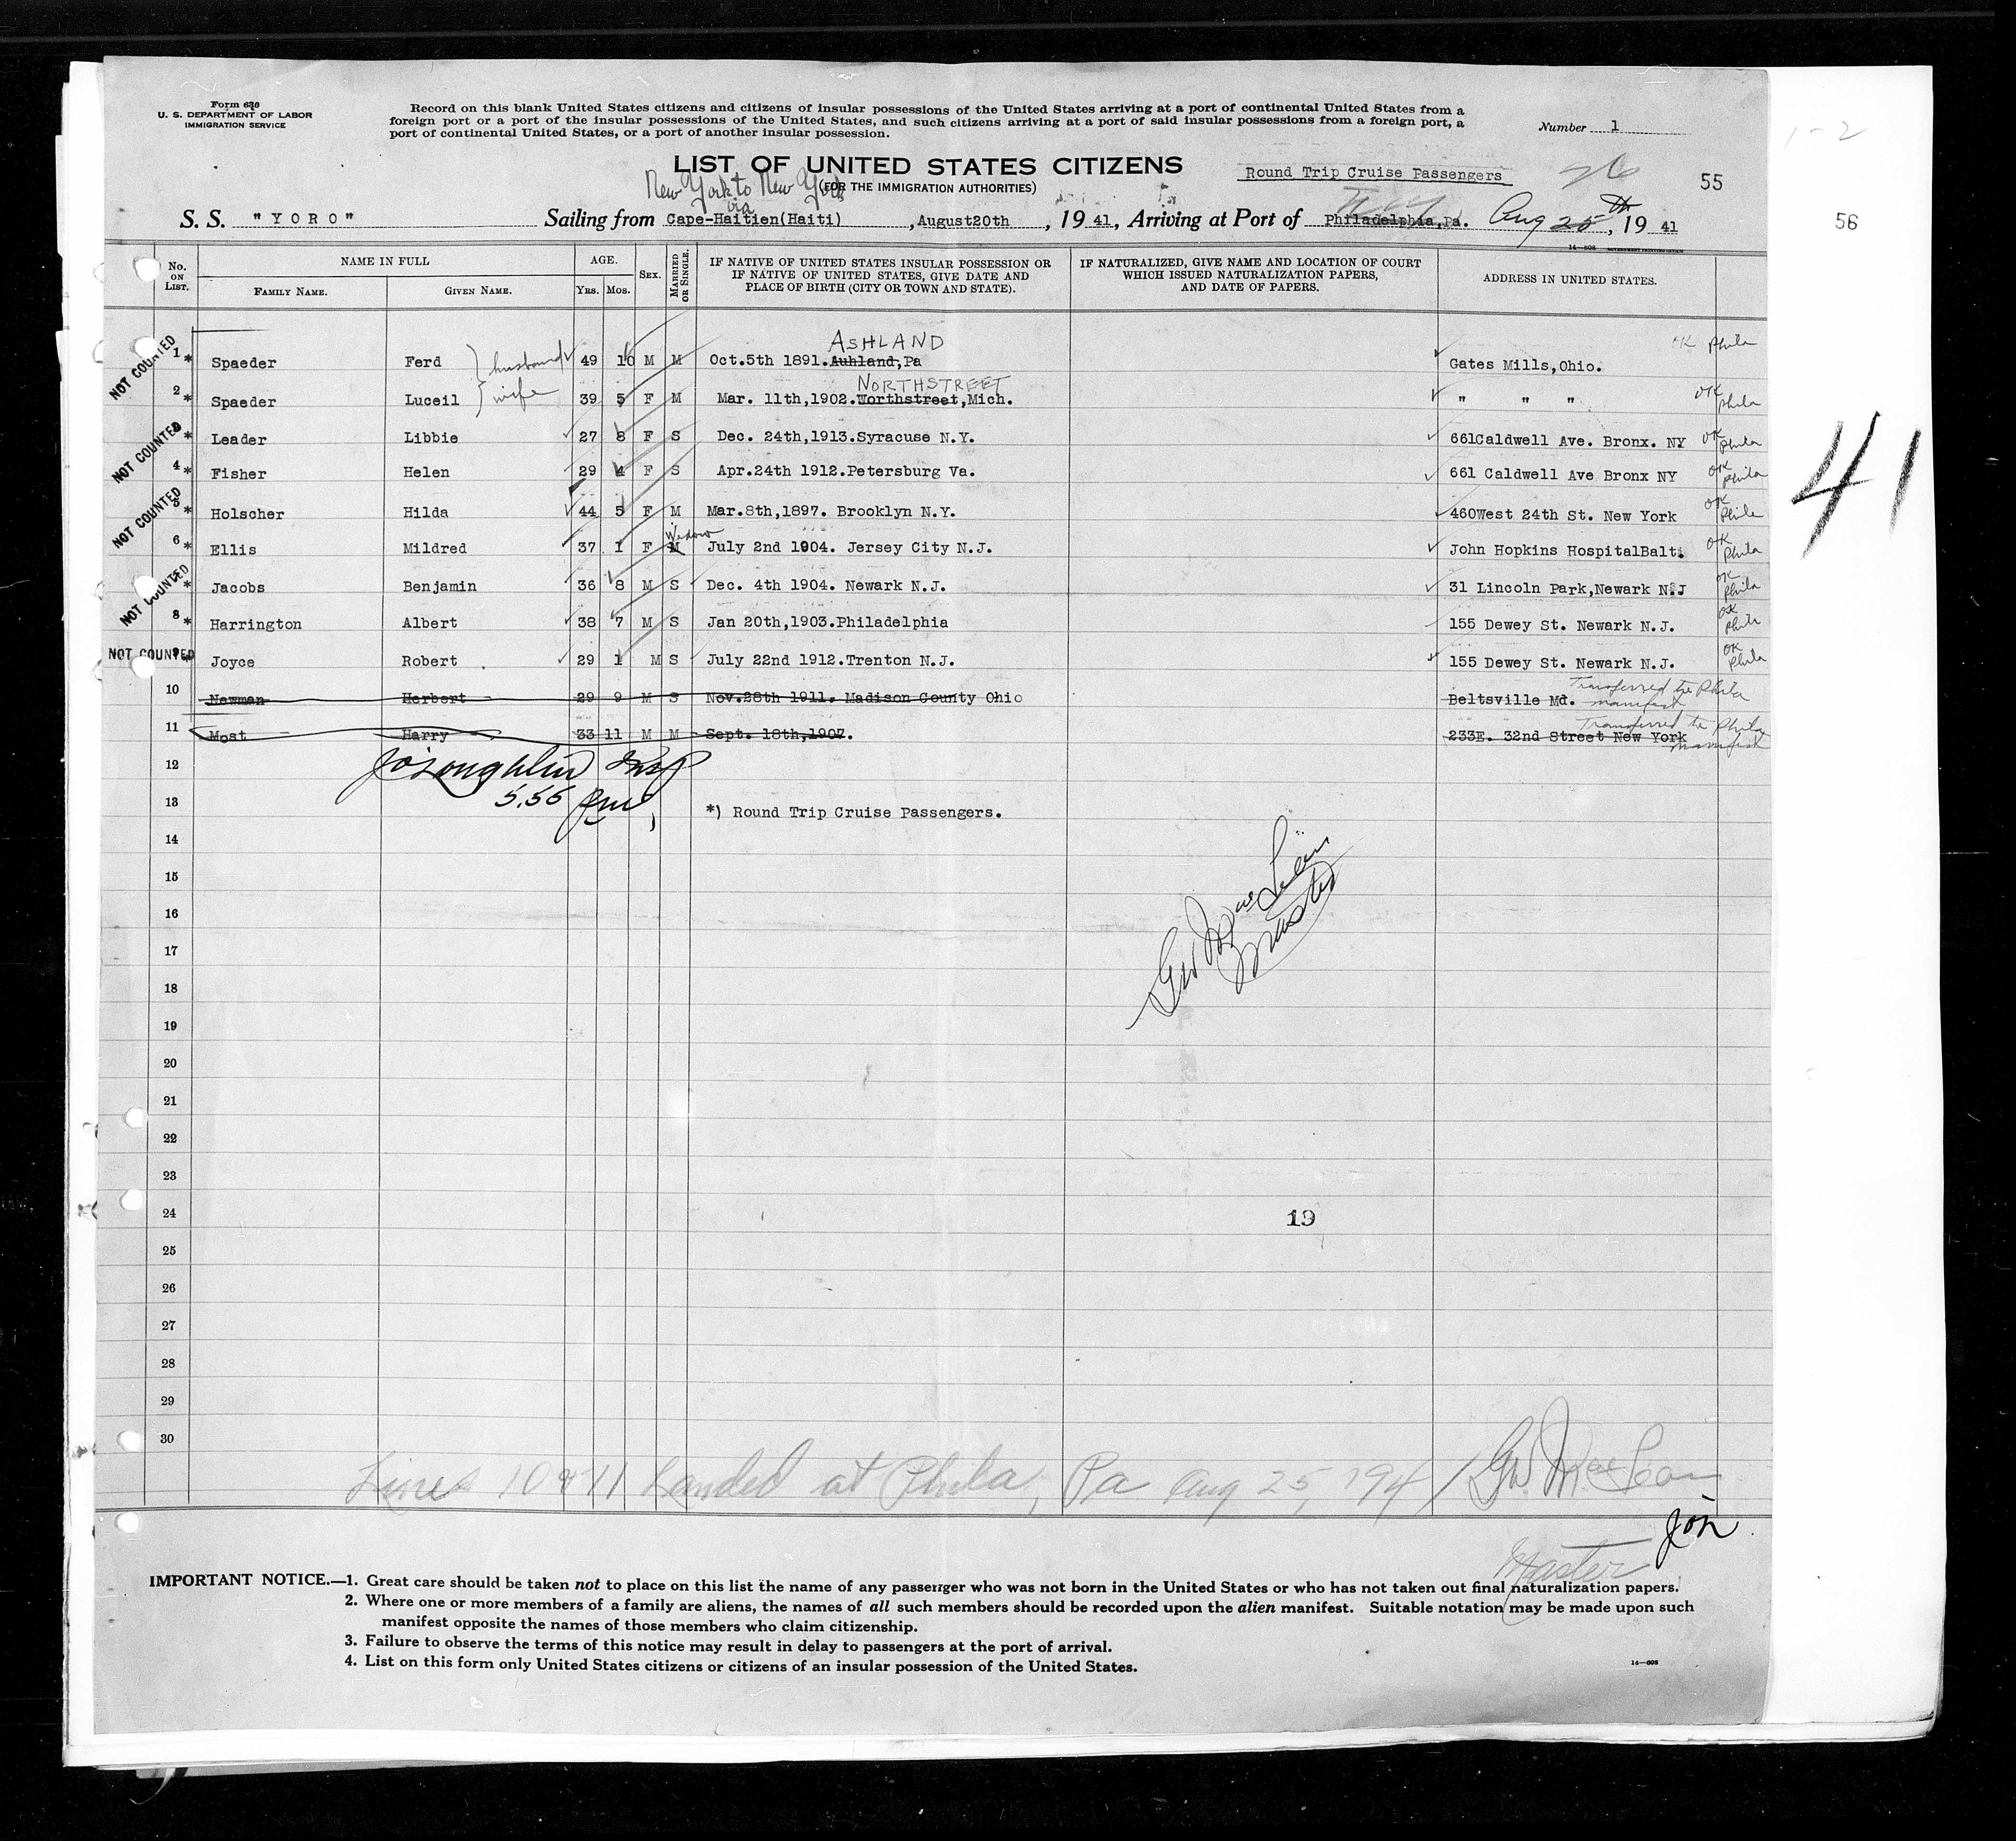 Form 630
U. S. DEPARTMENT OF LABOR
IMMIGRATION SERVICE
Record on this blank United States citizens and citizens of insular possessions of the United States arriving at a port of continental United States from a
foreign port or a port of the insular possessions of the United States, and such citizens arriving at a port of said insular possessions from a foreign port, a
port of continental United States, or a port of another insular possession.
Number 1
1-2
LIST OF UNITED STATES CITIZENS
Round Trip Cruise Passengers
26
55
New York to New York
(FOR THE IMMIGRATION AUTHORITIES)
via
S. S. "YORO" Sailing from Cape-Haitien(Haiti), August20th, 19 41, Arriving at Port of Philadelphia,Pa. Aug 25th, 19 41
56
14-608
No. ON LIST. NAME IN FULL FAMILY NAME. GIVEN NAME. AGE. YRS. MOS. SEX. MARRIED OR SINGLE. IF NATIVE OF UNITED STATES INSULAR POSSESSION OR IF NATIVE OF UNITED STATES, GIVE DATE AND PLACE OF BIRTH (CITY OR TOWN AND STATE). IF NATURALIZED, GIVE NAME AND LOCATION OF COURT WHICH ISSUED NATURALIZATION PAPERS, AND DATE OF PAPERS. ADDRESS IN UNITED STATES.
ASHLAND
NOT COUNTED 1 * Spaeder Ferd husband 49 10 M M Oct.5th 1891.Auhland,Pa Gates Mills,Ohio. OK Phila
NORTHSTREET
2 * Spaeder Luceil wife 39 5 F M Mar. 11th,1902.Worthstreet,Mich. " " " OK Phila
NOT COUNTED * Leader Libbie 27 8 F S Dec. 24th,1913.Syracuse N.Y. 661Caldwell Ave. Bronx. NY OK Phila
41
4 * Fisher Helen 29 4 F S Apr.24th 1912.Petersburg Va. 661 Caldwell Ave Bronx NY OK Phila
NOT COUNTED 5 * Holscher Hilda 44 5 F M Mar.8th,1897. Brooklyn N.Y. 460West 24th St. New York OK Phila
Widow
6 * Ellis Mildred 37 1 F M July 2nd 1904. Jersey City N.J. John Hopkins HospitalBalt. OK Phila
NOT COUNTED * Jacobs Benjamin 36 8 M S Dec. 4th 1904. Newark N.J. 31 Lincoln Park,Newark N.J OK Phila
8 * Harrington Albert 38 7 M S Jan 20th,1903.Philadelphia 155 Dewey St. Newark N.J. OK Phila
NOT COUNTED Joyce Robert 29 1 M S July 22nd 1912.Trenton N.J. 155 Dewey St. Newark N.J. OK Phila
10 Newman Herbert 29 9 M S Nov.28th 1911. Madison County Ohio Beltsville Md. Transferred to Phila manifest
11 Most Harry 33 11 M M Sept. 18th,1907. 233E. 32nd Street New York Transferred to Phila manifest
12 JO'Loughlin Insp
5.55 pm
13 *) Round Trip Cruise Passengers.
14
15
GW MacLean
Master
16
17
18
19
20
21
22
23
24 19
25
26
27
28
29
30
Lines 10 & 11 Landed at Phila, Pa Aug 25, 1941 GW MacLean
Master
IMPORTANT NOTICE.—1. Great care should be taken not to place on this list the name of any passenger who was not born in the United States or who has not taken out final naturalization papers.
2. Where one or more members of a family are aliens, the names of all such members should be recorded upon the alien manifest. Suitable notation may be made upon such
manifest opposite the names of those members who claim citizenship.
3. Failure to observe the terms of this notice may result in delay to passengers at the port of arrival.
4. List on this form only United States citizens or citizens of an insular possession of the United States.
14—608